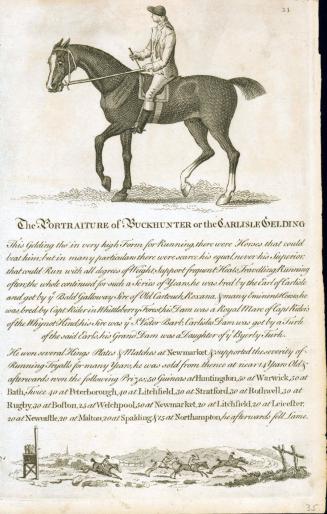 21
The PORTRAITURE of BUCKHUNTER or the CARLISLE GELDING
This Gelding tho' in very high Form for Running, there were Horses that could
beat him; but in many particulars there were scarce his equal, never his Superior,
that could Run with all degrees of Weight, Support frequent Heats, Travelling, Running
often; the whole continued for such a Series of Years, he was bred by the Earl of Carlisle
and got by ye Bald Galloway Sire of Old Cartouch, Roxana, & many Eminent Horses, he
was bred by Capt Rider in Whittlebery Forest, his Dam was a Royal Mare of Capt Riders
of the Whynot kind, his Sire was ye St Victor Barb. Carlisles Dam was got by a Turk
of the said Earls, his Gran Dam was a Daughter of ye Byerly Turk.
He won several Kings Plates & Matches at Newmarket & supported the severity of
Running Tryalls for many Years, he was sold from thence at near 14 Years Old &
afterwards won the following Prizes; 50 Guineas at Huntingdon, 30 at Warwick, 50 at
Bath, twice 40 at Peterborough, 40 at Litchfield, 30 at Stratford, 30 at Rothwell, 30 at
Rugby, 30 at Boston, 25 at Welchpool, 50 at Newmarket, 20 at Litchfield, 20 at Leicester,
20 at Newcastle, 20 at Malton, 20 at Spalding & 25 at Northampton, he afterwards fell Lame.
35